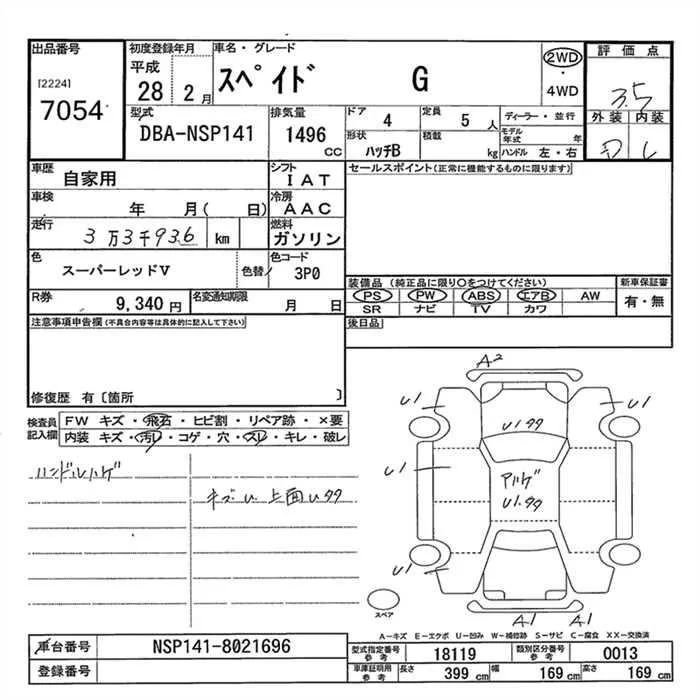 出品番号 初度登録年月 車名・グレード 評価点
[2224] 平成 スペイド G 2WD ・ 4WD 3.5
7054 28 2月 外装 内装
型式 排気量 ドア 4 定員 5人 ディーラー・並行
DBA-NSP141 1496 CC 形状 ハッチB 積載 kg モデル年式 年 ハンドル 左・右
車歴 自家用 シフト IAT セールスポイント(正常に機能するものに限ります)
車検 年 月( 日) 冷房 AAC
走行 3万3千936 km 燃料 ガソリン
色 スーパーレッドV 色替/ 色コード 3P0
装備品 (純正品に限り○をつけてください) 新車保証書
R券 9,340円 名変通知期限 月 日 PS PW ABS エアB AW 有・無
SR ナビ TV カワ
注意事項申告欄(不具合内容等は具体的に記入して下さい) 後日品
修復歴 有〔箇所 〕
検査員記入欄 FW キズ・飛石・ヒビ割・リペア跡・×要
内装 キズ・汚レ・コゲ・穴・スレ・キレ・破レ
ハンドルハゲ
キズU 上面Uタタ
A2
U1 U1
Uタタ
U1 アハゲ
U1.タタ
U1
A1 A1
スペア
A－キズ E－エクボ U－凹み W－補修跡 S－サビ C－腐食 XX－交換済
車台番号 NSP141-8021696 型式指定番号 参考 18119 類別区分番号 参考 0013
登録番号 車庫証明用 参考 長さ 399 cm 幅 169 cm 高さ 169 cm